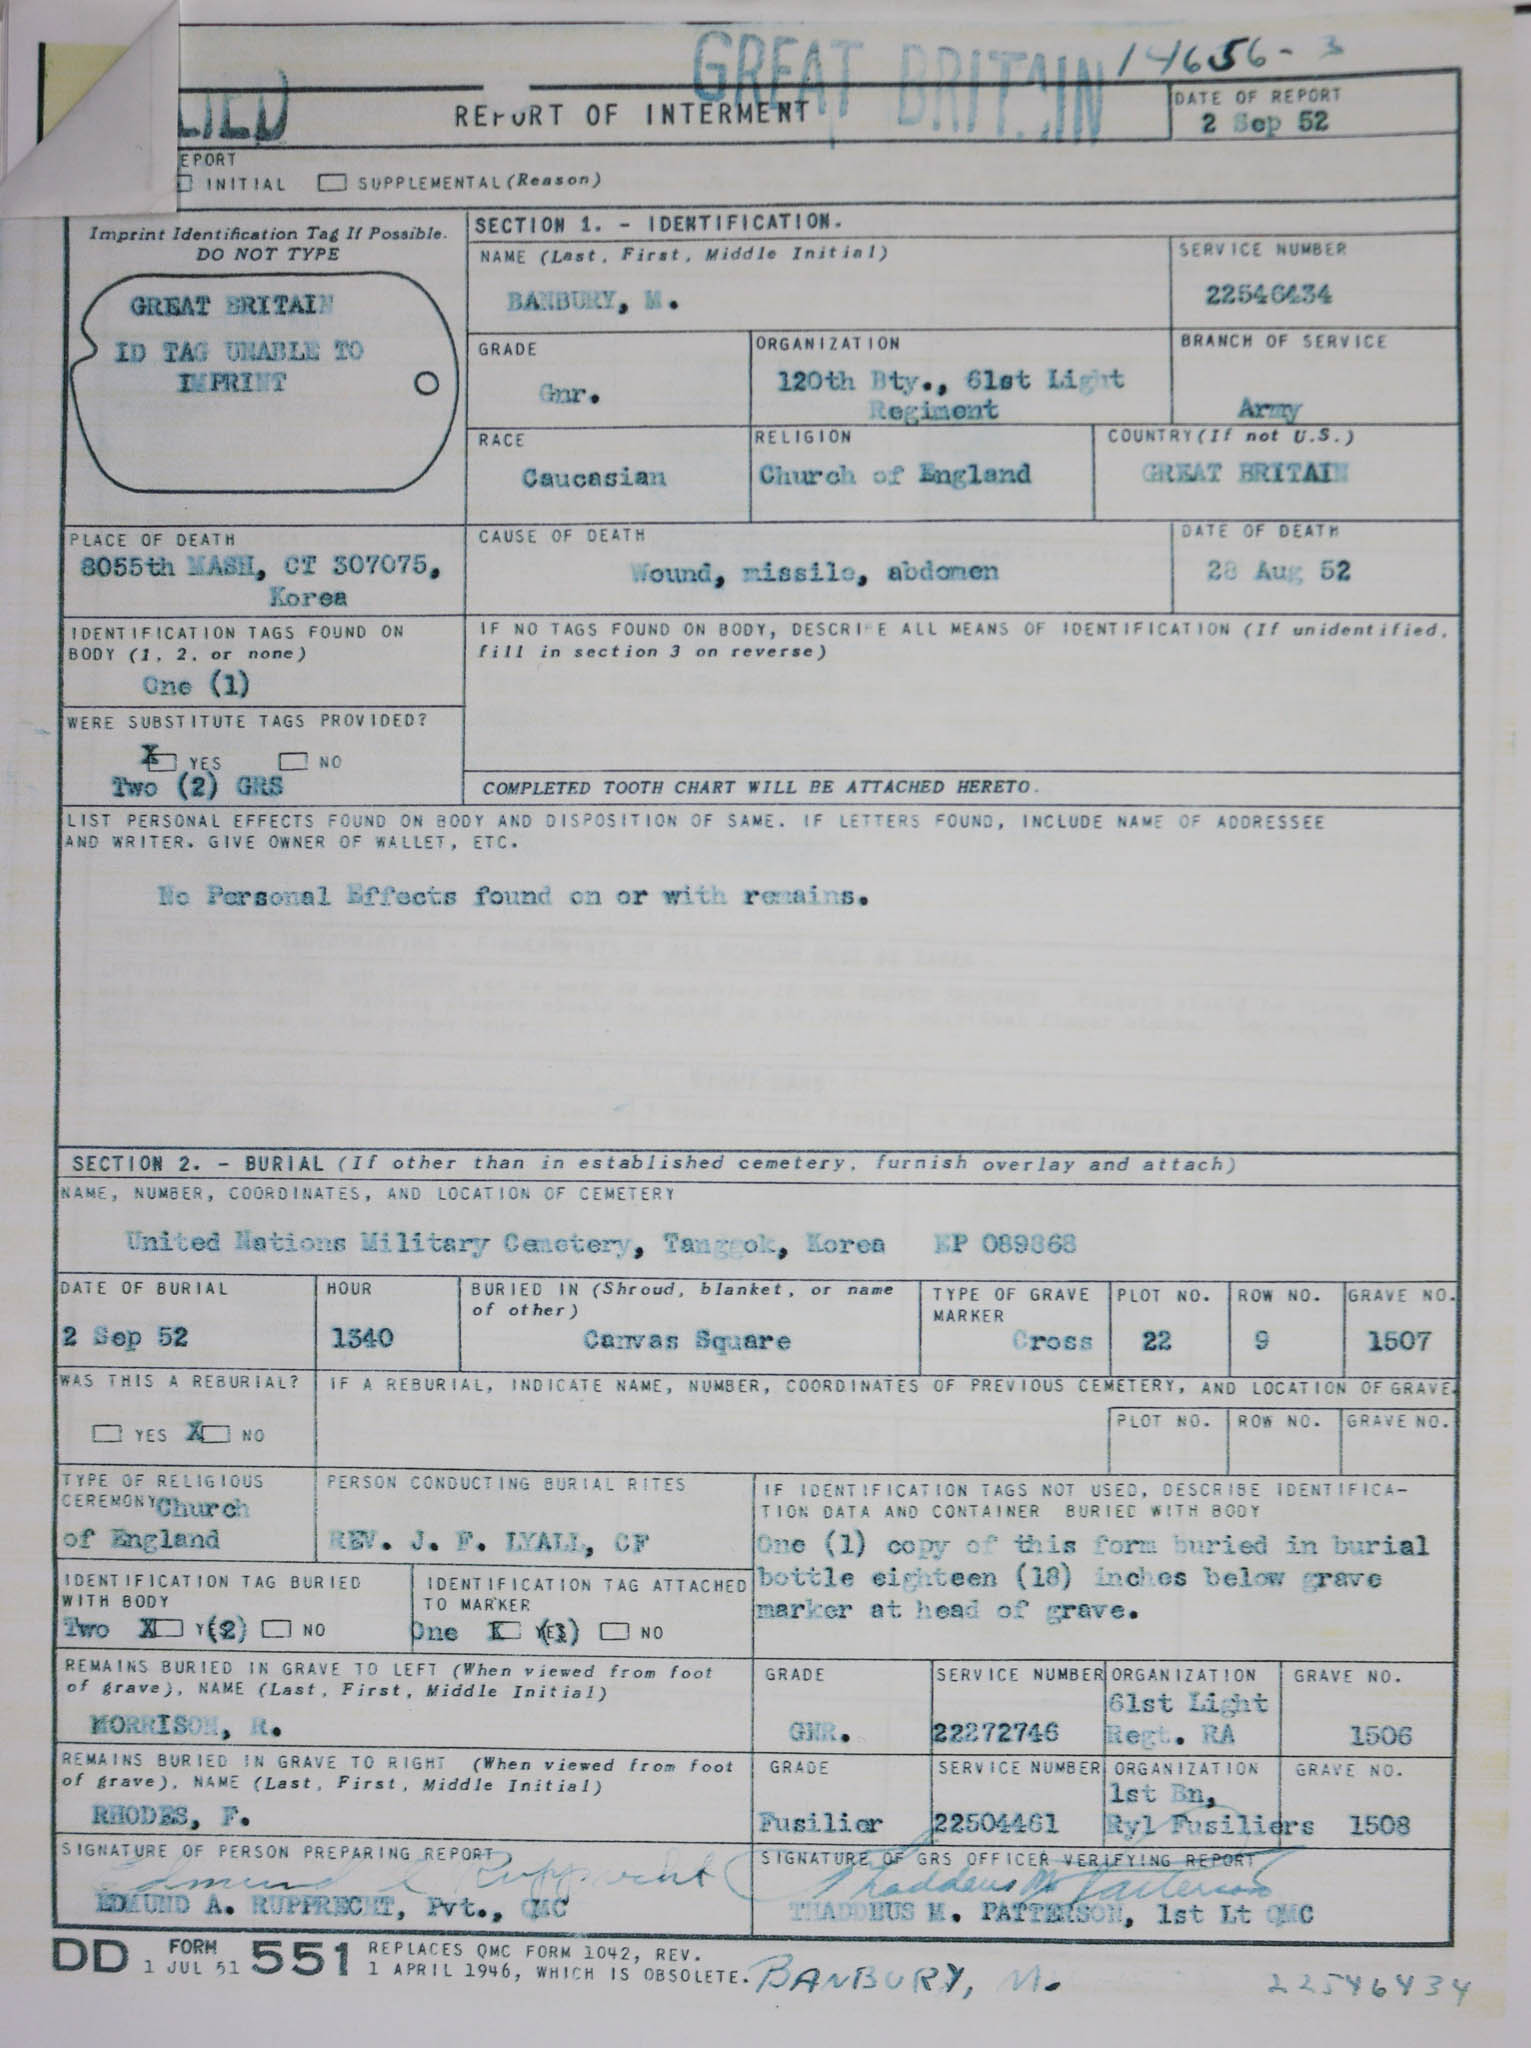 GREAT BRITAIN 14656-3
LIED
REPORT OF INTERMENT
DATE OF REPORT
2 Sep 52
EPORT
INITIAL SUPPLEMENTAL (Reason)
Imprint Identification Tag If Possible.
DO NOT TYPE
GREAT BRITAIN
ID TAG UNABLE TO
IMPRINT
SECTION 1. - IDENTIFICATION.
NAME (Last, First, Middle Initial)
BANBURY, M.
SERVICE NUMBER
22546434
GRADE
Gnr.
ORGANIZATION
120th Bty., 61st Light
Regiment
BRANCH OF SERVICE
Army
RACE
Caucasian
RELIGION
Church of England
COUNTRY (If not U.S.)
GREAT BRITAIN
PLACE OF DEATH
8055th MASH, CT 307075,
Korea
CAUSE OF DEATH
Wound, missile, abdomen
DATE OF DEATH
28 Aug 52
IDENTIFICATION TAGS FOUND ON
BODY (1, 2, or none)
One (1)
IF NO TAGS FOUND ON BODY, DESCRIBE ALL MEANS OF IDENTIFICATION (If unidentified,
fill in section 3 on reverse)
WERE SUBSTITUTE TAGS PROVIDED?
X YES NO
Two (2) GRS
COMPLETED TOOTH CHART WILL BE ATTACHED HERETO.
LIST PERSONAL EFFECTS FOUND ON BODY AND DISPOSITION OF SAME. IF LETTERS FOUND, INCLUDE NAME OF ADDRESSEE
AND WRITER. GIVE OWNER OF WALLET, ETC.
No Personal Effects found on or with remains.
SECTION 2. - BURIAL (If other than in established cemetery, furnish overlay and attach)
NAME, NUMBER, COORDINATES, AND LOCATION OF CEMETERY
United Nations Military Cemetery, Tanggok, Korea EP 089868
DATE OF BURIAL
2 Sep 52
HOUR
1340
BURIED IN (Shroud, blanket, or name
of other)
Canvas Square
TYPE OF GRAVE
MARKER
Cross
PLOT NO.
22
ROW NO.
9
GRAVE NO.
1507
WAS THIS A REBURIAL?
YES X NO
IF A REBURIAL, INDICATE NAME, NUMBER, COORDINATES OF PREVIOUS CEMETERY, AND LOCATION OF GRAVE.
PLOT NO. ROW NO. GRAVE NO.
TYPE OF RELIGIOUS
CEREMONY Church
of England
PERSON CONDUCTING BURIAL RITES
REV. J. F. LYALL, CF
IF IDENTIFICATION TAGS NOT USED, DESCRIBE IDENTIFICA-
TION DATA AND CONTAINER BURIED WITH BODY
One (1) copy of this form buried in burial
bottle eighteen (18) inches below grave
marker at head of grave.
IDENTIFICATION TAG BURIED
WITH BODY
Two X (2) NO
IDENTIFICATION TAG ATTACHED
TO MARKER
One X (1) NO
REMAINS BURIED IN GRAVE TO LEFT (When viewed from foot
of grave), NAME (Last, First, Middle Initial)
MORRISON, R.
GRADE
GNR.
SERVICE NUMBER
22272746
ORGANIZATION
61st Light
Regt. RA
GRAVE NO.
1506
REMAINS BURIED IN GRAVE TO RIGHT (When viewed from foot
of grave), NAME (Last, First, Middle Initial)
RHODES, F.
GRADE
Fusilier
SERVICE NUMBER
22504461
ORGANIZATION
1st Bn,
Ryl Fusiliers
GRAVE NO.
1508
SIGNATURE OF PERSON PREPARING REPORT
Edmund A Rupprecht
EDMUND A. RUPPRECHT, Pvt., QMC
SIGNATURE OF GRS OFFICER VERIFYING REPORT
Thaddeus M Patterson
THADDEUS M. PATTERSON, 1st Lt QMC
DD FORM 1 JUL 51 551 REPLACES QMC FORM 1042, REV.
1 APRIL 1946, WHICH IS OBSOLETE.
BANBURY, M. 22546434